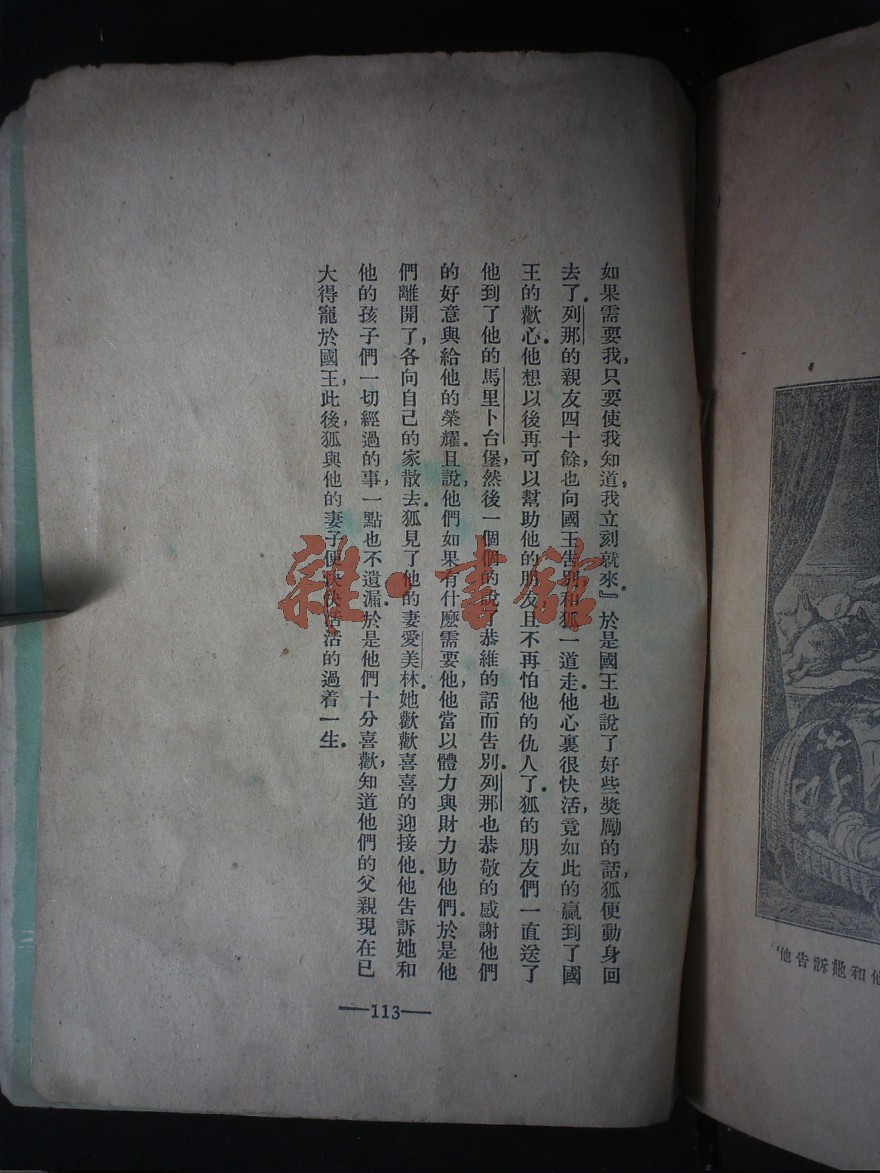 如果需要我，只要使我知道，我立刻就來』於是國王也說了好些獎勵的話，狐便動身回
去了。列那的親友四十餘，也向國王告別，和狐一道走。他心裏很快活，竟如此的贏到了國
王的歡心。他想以後再可以幫助他的朋友且不再怕他的仇人了。狐的朋友們一直送了
他到了他的馬里卜台堡，然後一個個的說了恭維的話而告別。列那也恭敬的感謝他們
的好意與給他的榮耀。且說，他們如果有什麼需要他，他當以體力與財力助他們。於是他
們離開了，各向自己的家散去。狐見了他的妻愛美林。她歡歡喜喜的迎接他。他告訴她和
他的孩子們一切經過的事，一點也不遺漏。於是他們十分喜歡，知道他們的父親現在已
大得寵於國王，此後，狐與他的妻子便快快活活的過着一生。
—113—
雜·書館
“他告訴她和他